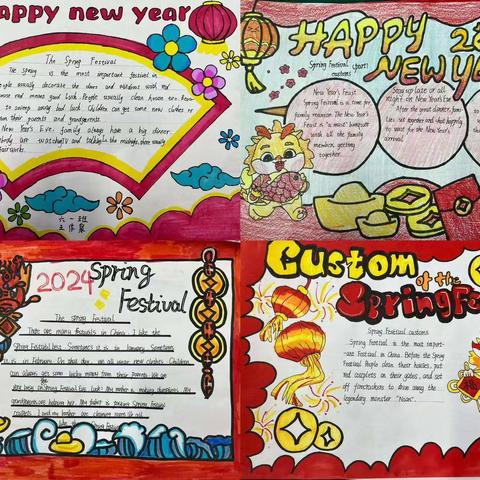 Happy new year
The Spring Festival
The Spring is the most important festival in
People usually decorate the doors and windows with red
means good luck. People usually clean house too. hope
to sweep away bad luck. Children can get some new clothes or
from their parents and grandparents.
New Year's Eve. family always have a big dinner.
are watching TV and talking. In the midnight, there usually
fairworks.
六一班
HAPPY 202
NEW YEA
Spring Festival (part)
customs
New Year's Feast
Spring Festival is a time for
family reunion. The New Year's
Feast is "a must" banquet
with all the family
members getting
together.
Stay up late or all
night on New Year's Eve
After the great dinner, fami
lies sit together and chat happily
to wait for the New Year's
arrival.
2024 Spring
Festival
The Spring Festival
There are many festivals in China. I like the
Spring Festival best. Sometimes it is in January. Sometimes
it is in February. On that day, we all wear new clothes. Children
can always get some lucky money from their parents. We are
busy on Spring Festival Eve. Look! My mother is making dumplings. My
grandparents are helping her. My father is pasting Spring Festival
couplets. I and my brother are cleaning room. We all
like the Spring Festival
Custom
of the
Spring Fes
Spring Festival customs
Spring Festival is the most import-
ant Festival in China. Before the Spring
Festival People clean their houses, put
red couplets on their gates, and set
off firecrackers to drive away the
legendary monster "Nian".